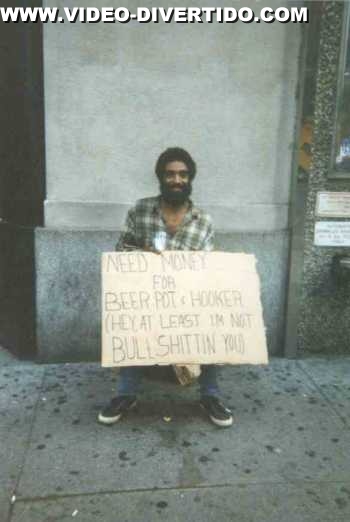 WWW.VIDEO-DIVERTIDO.COM
NEED MONEY
FOR
BEER, POT & HOOKER
(HEY, AT LEAST I'M NOT
BULLSHITTIN YOU)